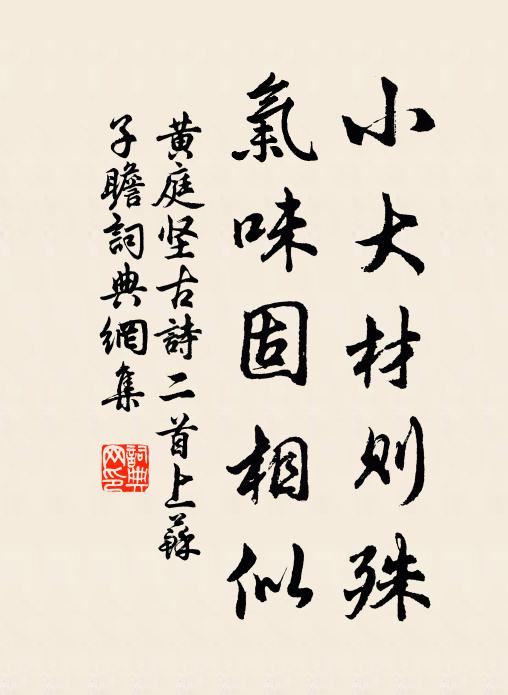 小大材则殊
氣味固相似
黄庭坚古詩二首上蘇
子瞻詞典網集
詞典网印